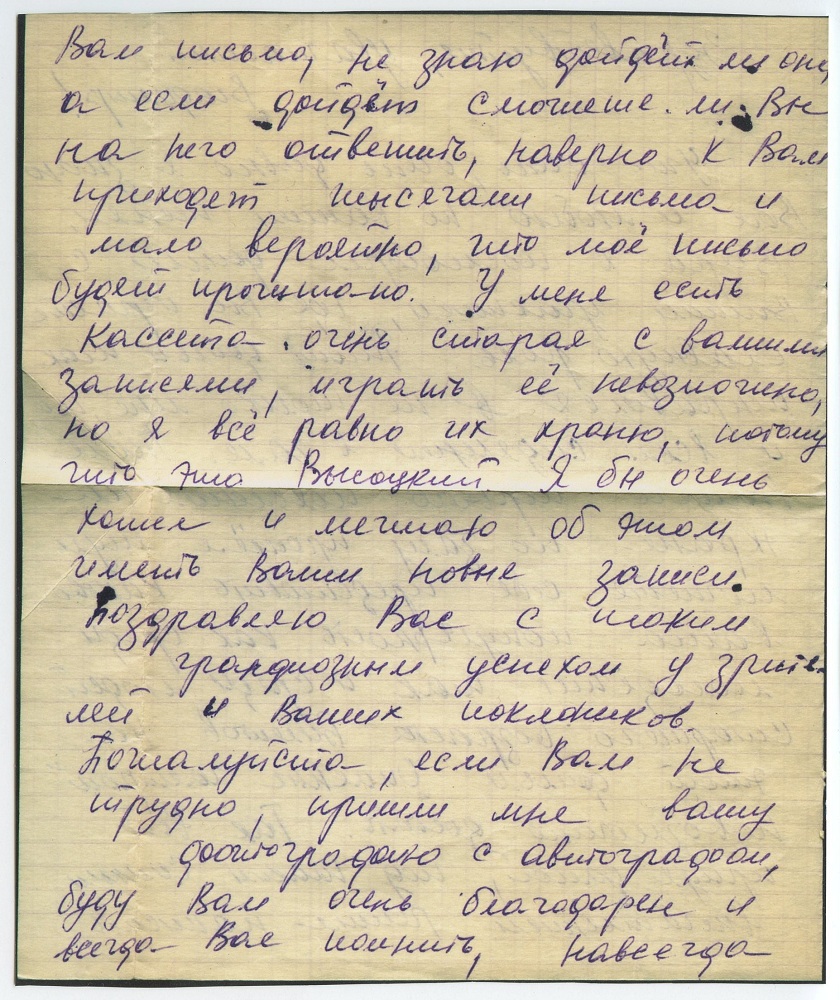 Вам письмо, не знаю дойдёт ли оно,
а если дойдёт сможете ли Вы
на него ответить, наверно к Вам
приходет тысечами письма и
мало вероятно, что моё письмо
будет прочитано. У меня есть
Кассета очень старая с вашими
записями, играть её невозможно,
но я всё равно их храню, потому
что это Высоцкий. Я бы очень
хотел и мечтаю об этом
иметь Ваши новые записи.
Поздравляю Вас с таким
грандиозным успехом у зрите-
лей и Ваших поклоников.
Пожалуйста, если Вам не
трудно, пришли мне вашу
фоитографию с автографом,
буду Вам очень благодарен и
всегда Вас помнить, навсегда